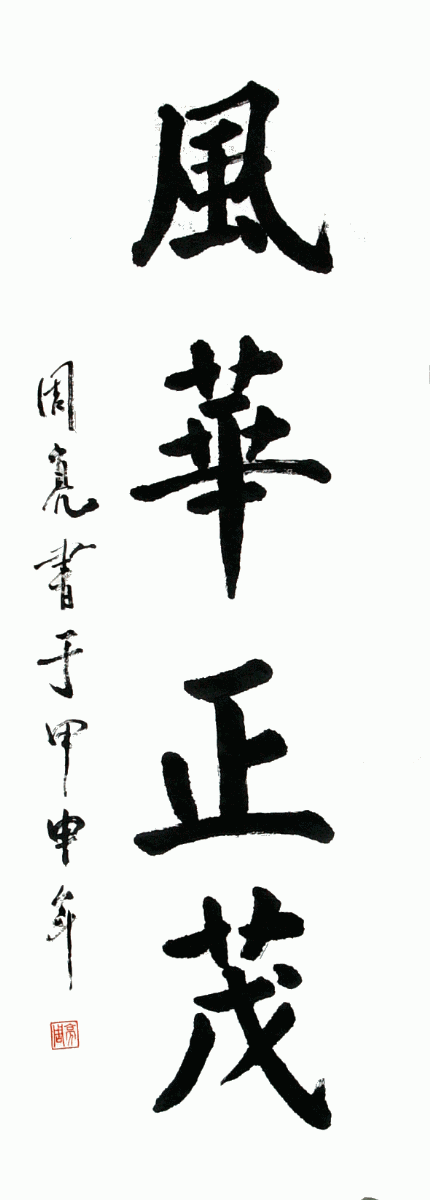 風華正茂
周亮書于甲申年
周亮